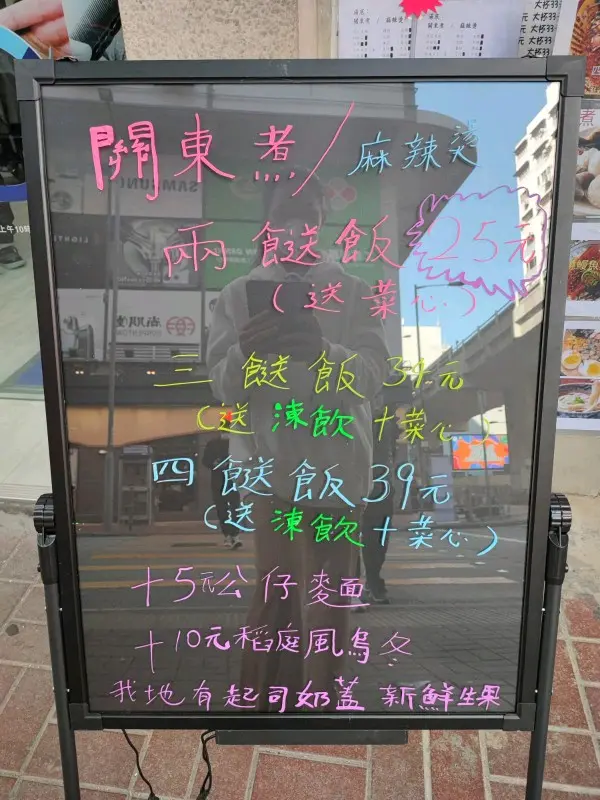 關東煮/麻辣燙
兩餸飯25元
(送菜心)
三餸飯34元
(送凍飲+菜心)
四餸飯39元
(送凍飲+菜心)
+5元公仔麵
+10元稻庭風烏冬
我地有起司奶蓋 新鮮生果
上午10時
SAMSUNG